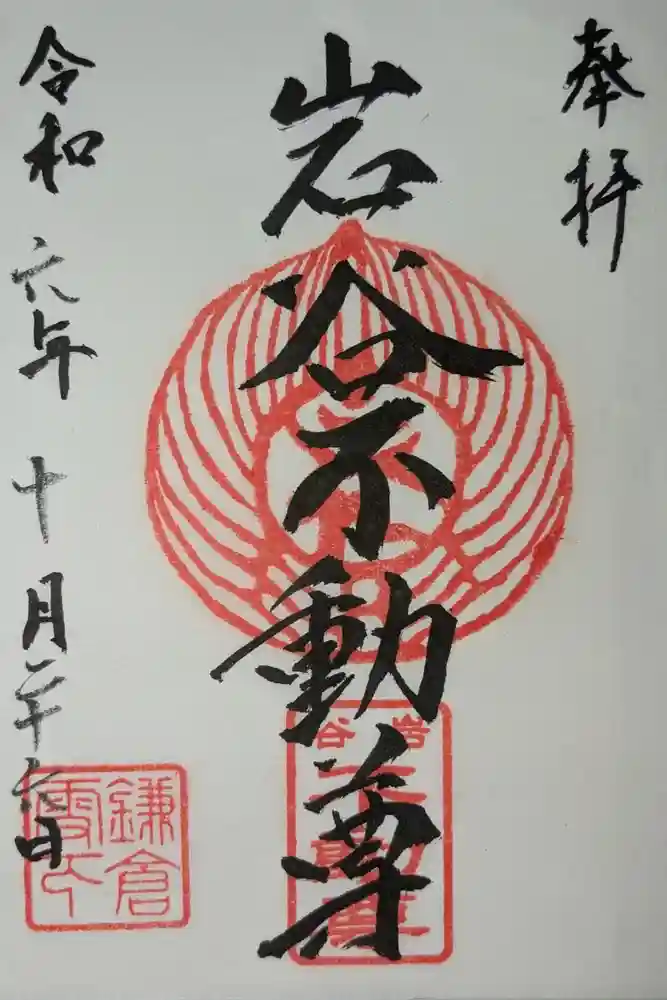 奉拝
岩谷不動尊
岩谷
不動尊
令和六年十月二十六日
鎌倉